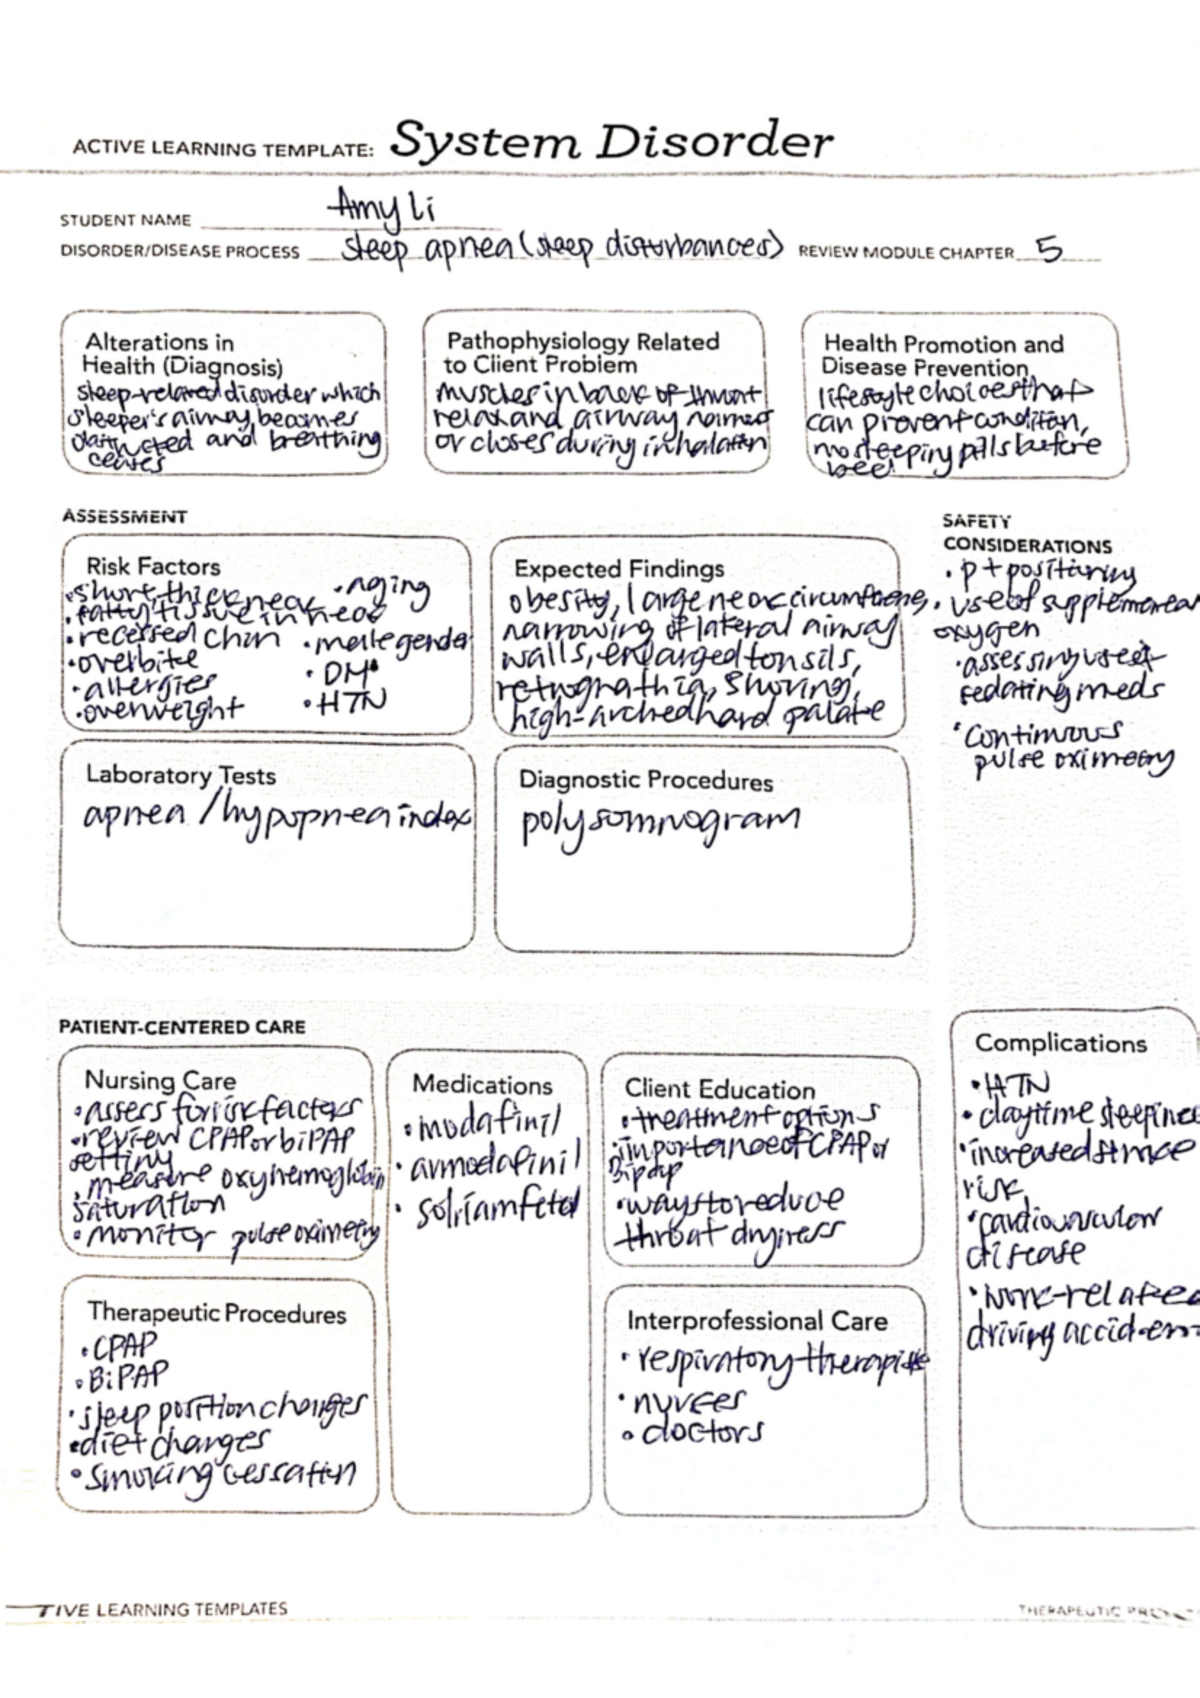 ACTIVE LEARNING TEMPLATE: System Disorder
STUDENT NAME Amy Li
DISORDER/DISEASE PROCESS sleep apnea (sleep disturbances) REVIEW MODULE CHAPTER 5
Alterations in
Health (Diagnosis)
sleep-related disorder which
sleeper's airway becomes
obstructed and breathing
ceases
Pathophysiology Related
to Client Problem
muscles in back of throat
relax and airway narrows
or closes during inhalation
Health Promotion and
Disease Prevention
lifestyle choices that
can prevent condition,
no sleeping pills before
bed
ASSESSMENT
Risk Factors
• short, thick neck
• fatty tissue in neck
• recessed chin
• overbite
• allergies
• overweight
• Aging
• male gender
• DM
• HTN
Expected Findings
obesity, large neck circumference,
narrowing of lateral airway
walls, enlarged tonsils,
retrognathia, snoring,
high-arched hard palate
SAFETY
CONSIDERATIONS
• pt positioning
• use of supplemental
oxygen
• assessing use of
sedating meds
• continuous
pulse oximetry
Laboratory Tests
apnea / hypopnea index
Diagnostic Procedures
polysomnogram
PATIENT-CENTERED CARE
Nursing Care
• assess for risk factors
• review CPAP or biPAP
setting
• measure oxyhemoglobin
saturation
• monitor pulse oximetry
Medications
• modafinil
• armodafinil
• solriamfetol
Client Education
• treatment options
• importance of CPAP or
Bipap
• ways to reduce
throat dryness
Complications
• HTN
• daytime sleepiness
• increased stroke
risk
• cardiovascular
disease
• work-related
driving accident
Therapeutic Procedures
• CPAP
• BiPAP
• sleep position changes
• diet changes
• smoking cessation
Interprofessional Care
• respiratory therapist
• nurses
• doctors
TIVE LEARNING TEMPLATES
THERAPEUTIC